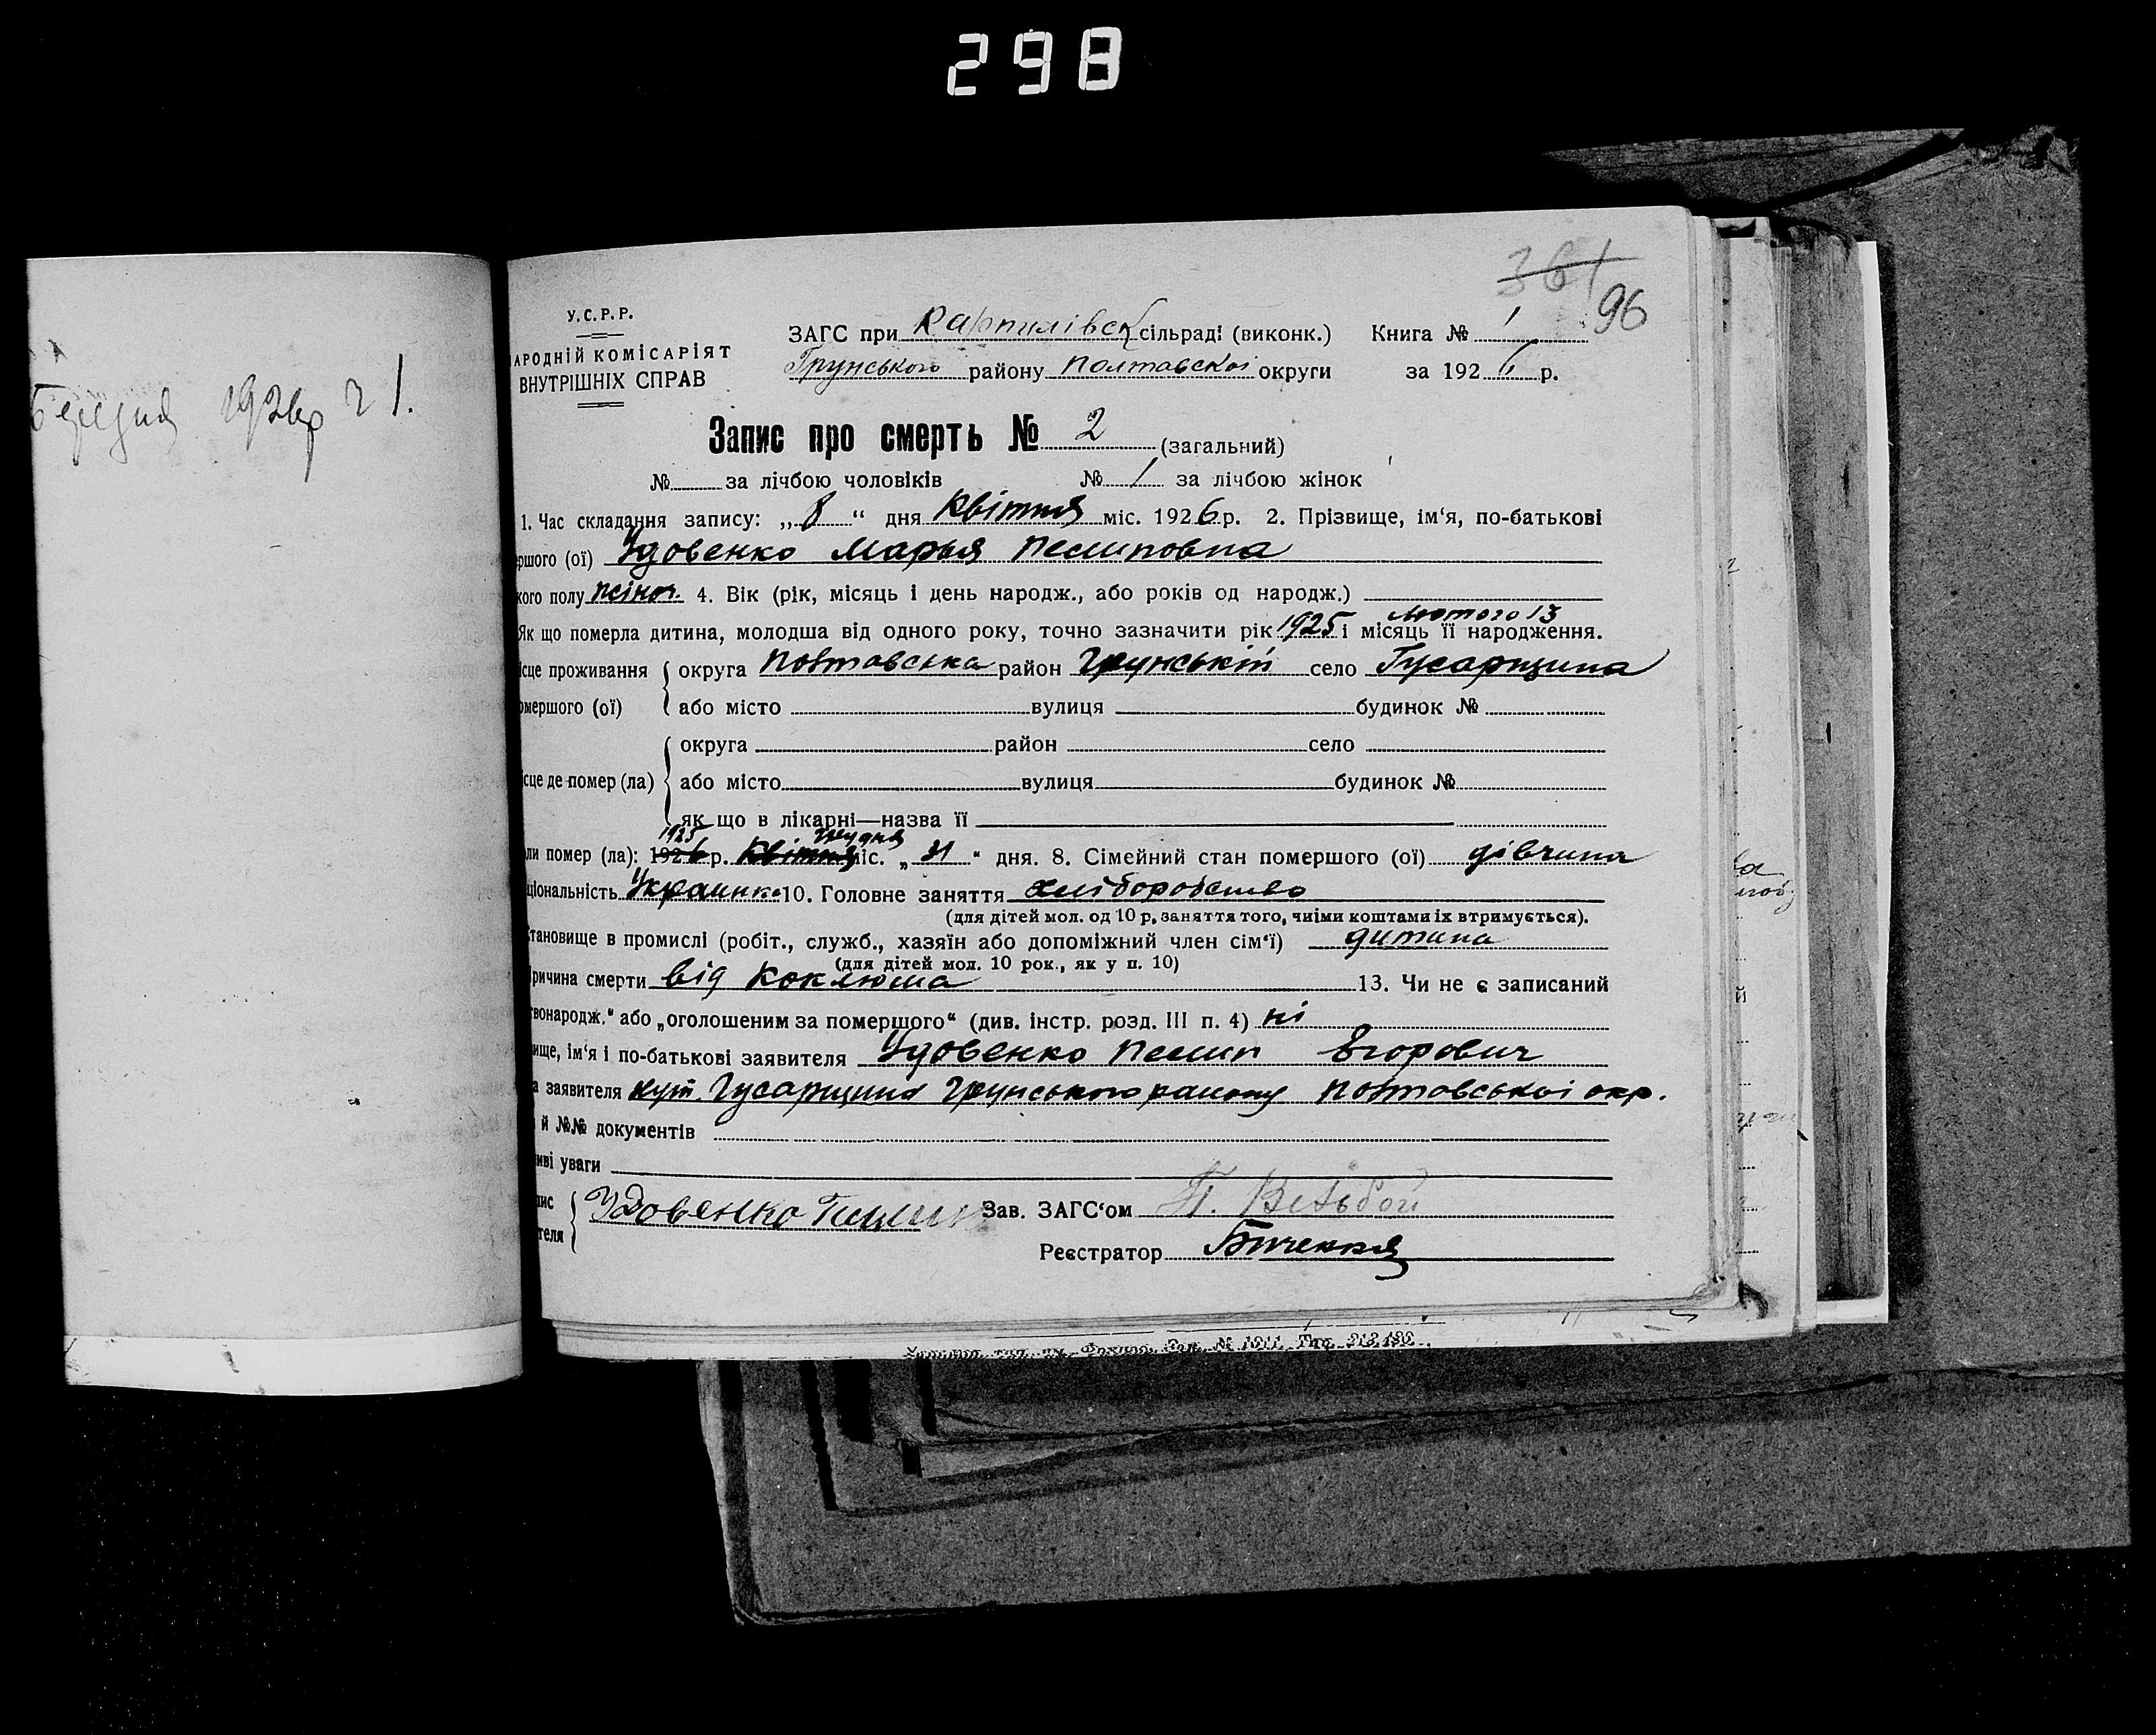 298
361
96
У.С.Р.Р.
АРОДНІЙ КОМІСАРІЯТ
ВНУТРІШНІХ СПРАВ
ЗАГС при Карпилівск сільраді (виконк.) Книга № 1
Грунського району Полтавскоі округи за 1926 р.
1926р 1.
Запис про смерть № 2 (загальний)
№ за лічбою чоловіків № 1 за лічбою жінок
1. Час складання запису: „ 8 “ дня Квітня міс. 1926 р. 2. Прізвище, ім‘я, по-батькові
ршого (ої) Удовенко Марья Пелиповна
кого полу жіноч. 4. Вік (рік, місяць і день народж., або років од народж.)
Як що померла дитина, молодша від одного року, точно зазначити рік 1925 і місяць лютого 13 її народження.
ісце проживання округа Полтавська район Грунській село Гусарщина
омершого (ої) або місто вулиця будинок №
округа район село
ісце де помер (ла) або місто вулиця будинок №
як що в лікарні—назва її
1925 грудня
ли помер (ла): 1926 р. Квітня міс. „ 31 “ дня. 8. Сімейний стан помершого (ої) дівчина
ціональність Украинка 10. Головне заняття хліборобство
(для дітей мол. од 10 р, заняття того, чиїми коштами їх втримується).
тановище в промислі (робіт., служб., хазяїн або допоміжний член сім‘ї) дитина
(для дітей мол. 10 рок., як у п. 10)
ричина смерти від коклюша 13. Чи не є записаний
вонародж.“ або „оголошеним за помершого“ (див. інстр. розд. III п. 4) ні
ище, ім‘я і по-батькові заявителя Удовенко Пелип Егорович
а заявителя хут. Гусарщина Грунського району Полтавськоі окр.
й №№ документів
иві уваги
пис
теля Удовенко Пилип Зав. ЗАГС‘ом П.
Реєстратор